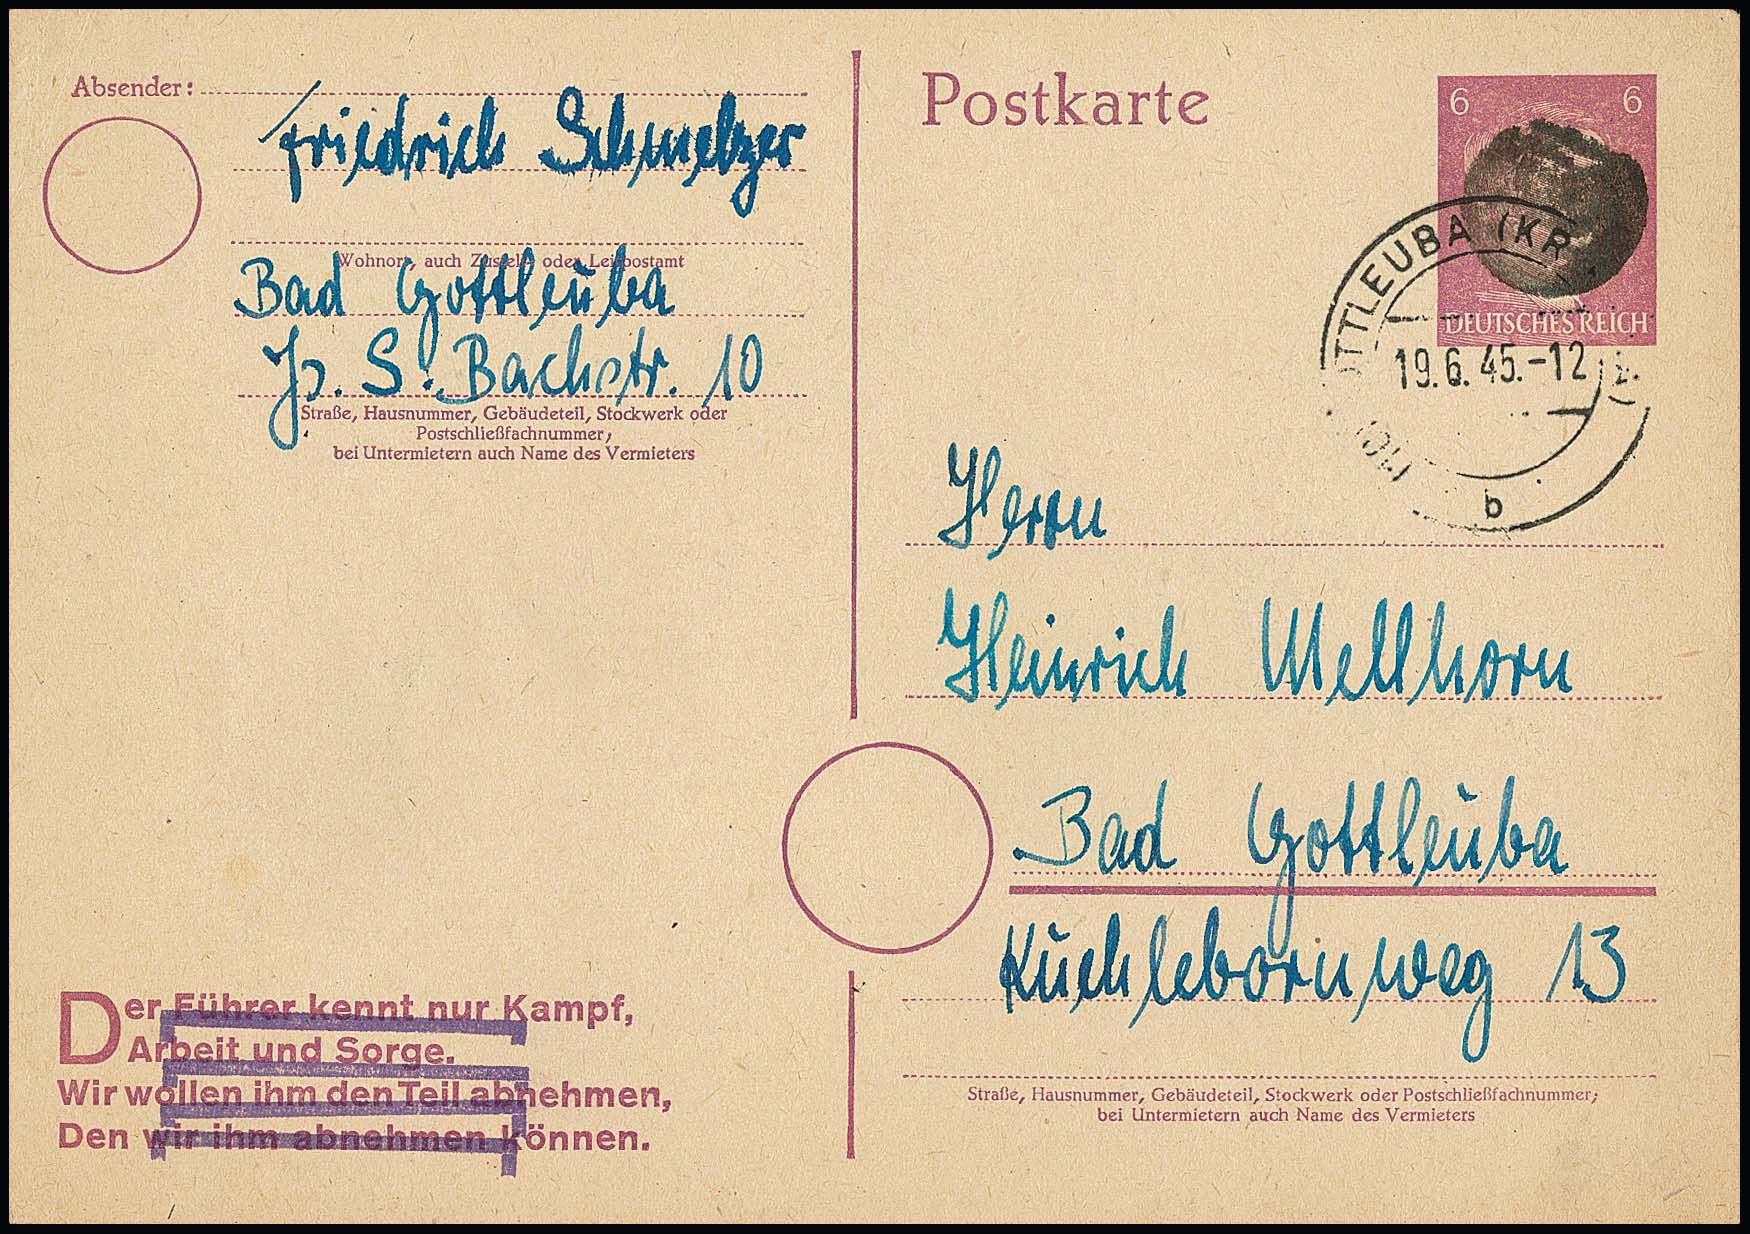 Absender:
Friedrich Schmelzer
Wohnort, auch Zustell- oder Leitpostamt
Bad Gottleuba
Js. S. Bachstr. 10
Straße, Hausnummer, Gebäudeteil, Stockwerk oder
Postschließfachnummer;
bei Untermietern auch Name des Vermieters
Postkarte
6 6
DEUTSCHES REICH
OTTLEUBA (KR
19.6.45.-12
b
Herrn
Heinrich Mellhorn
Bad Gottleuba
Kuchlebornweg 13
Straße, Hausnummer, Gebäudeteil, Stockwerk oder Postschließfachnummer;
bei Untermietern auch Name des Vermieters
Der Führer kennt nur Kampf,
Arbeit und Sorge.
Wir wollen ihm den Teil abnehmen,
Den wir ihm abnehmen können.